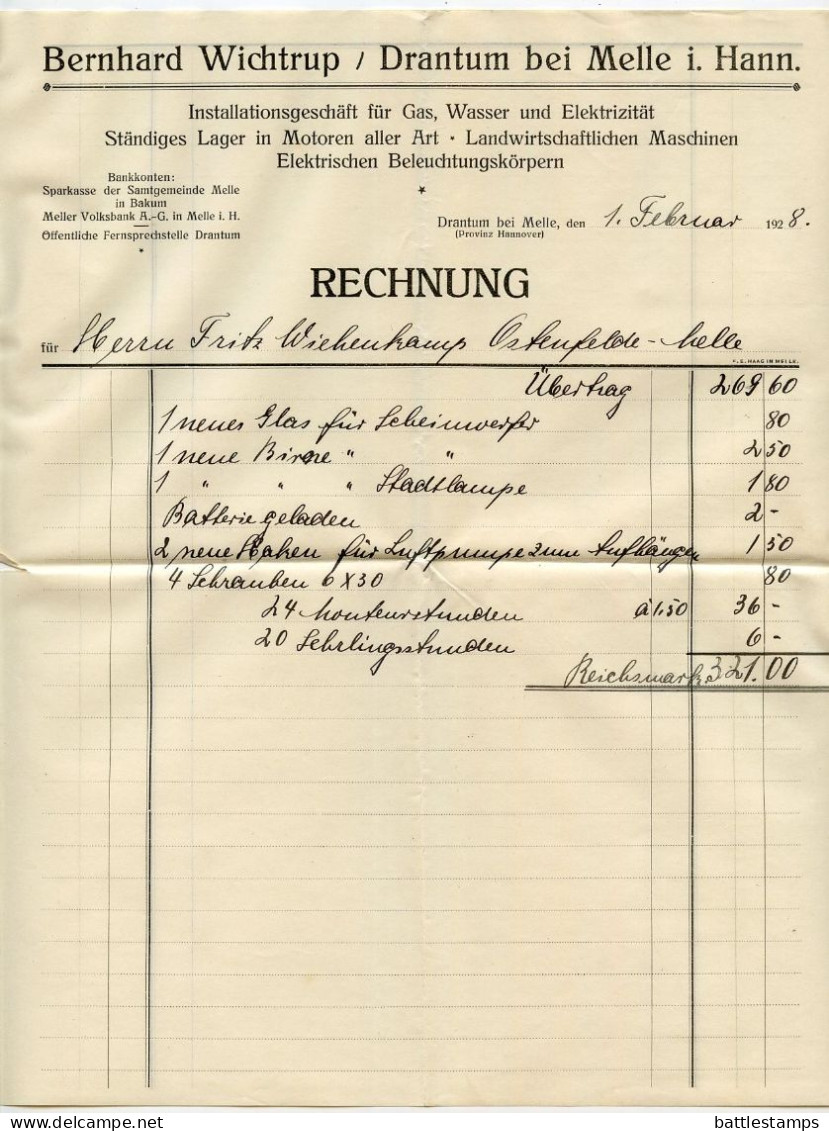 Bernhard Wichtrup / Drantum bei Melle i. Hann.
Installationsgeschäft für Gas, Wasser und Elektrizität
Ständiges Lager in Motoren aller Art · Landwirtschaftlichen Maschinen
Elektrischen Beleuchtungskörpern
Bankkonten:
Sparkasse der Samtgemeinde Melle
in Bakum
Meller Volksbank A.-G. in Melle i. H.
Öffentliche Fernsprechstelle Drantum
Drantum bei Melle, den 1. Februar 1928.
(Provinz Hannover)
RECHNUNG
für Herrn Fritz Wiehenkamp Ostenfelde-Melle
F. E. HAAG IN MELLE.
Übertrag 269 60
1 neues Glas für Scheinwerfer 80
1 neue Birne " " 2 50
1 " " " Stadtlampe 1 80
Batterie geladen 2 -
2 neue Haken für Luftpumpe zum Aufhängen 1 50
4 Schrauben 6 x 30 80
24 Monteurstunden á 1.50 36 -
20 Lehrlingsstunden 6 -
Reichsmark 321.00
www.delcampe.net
battlestamps